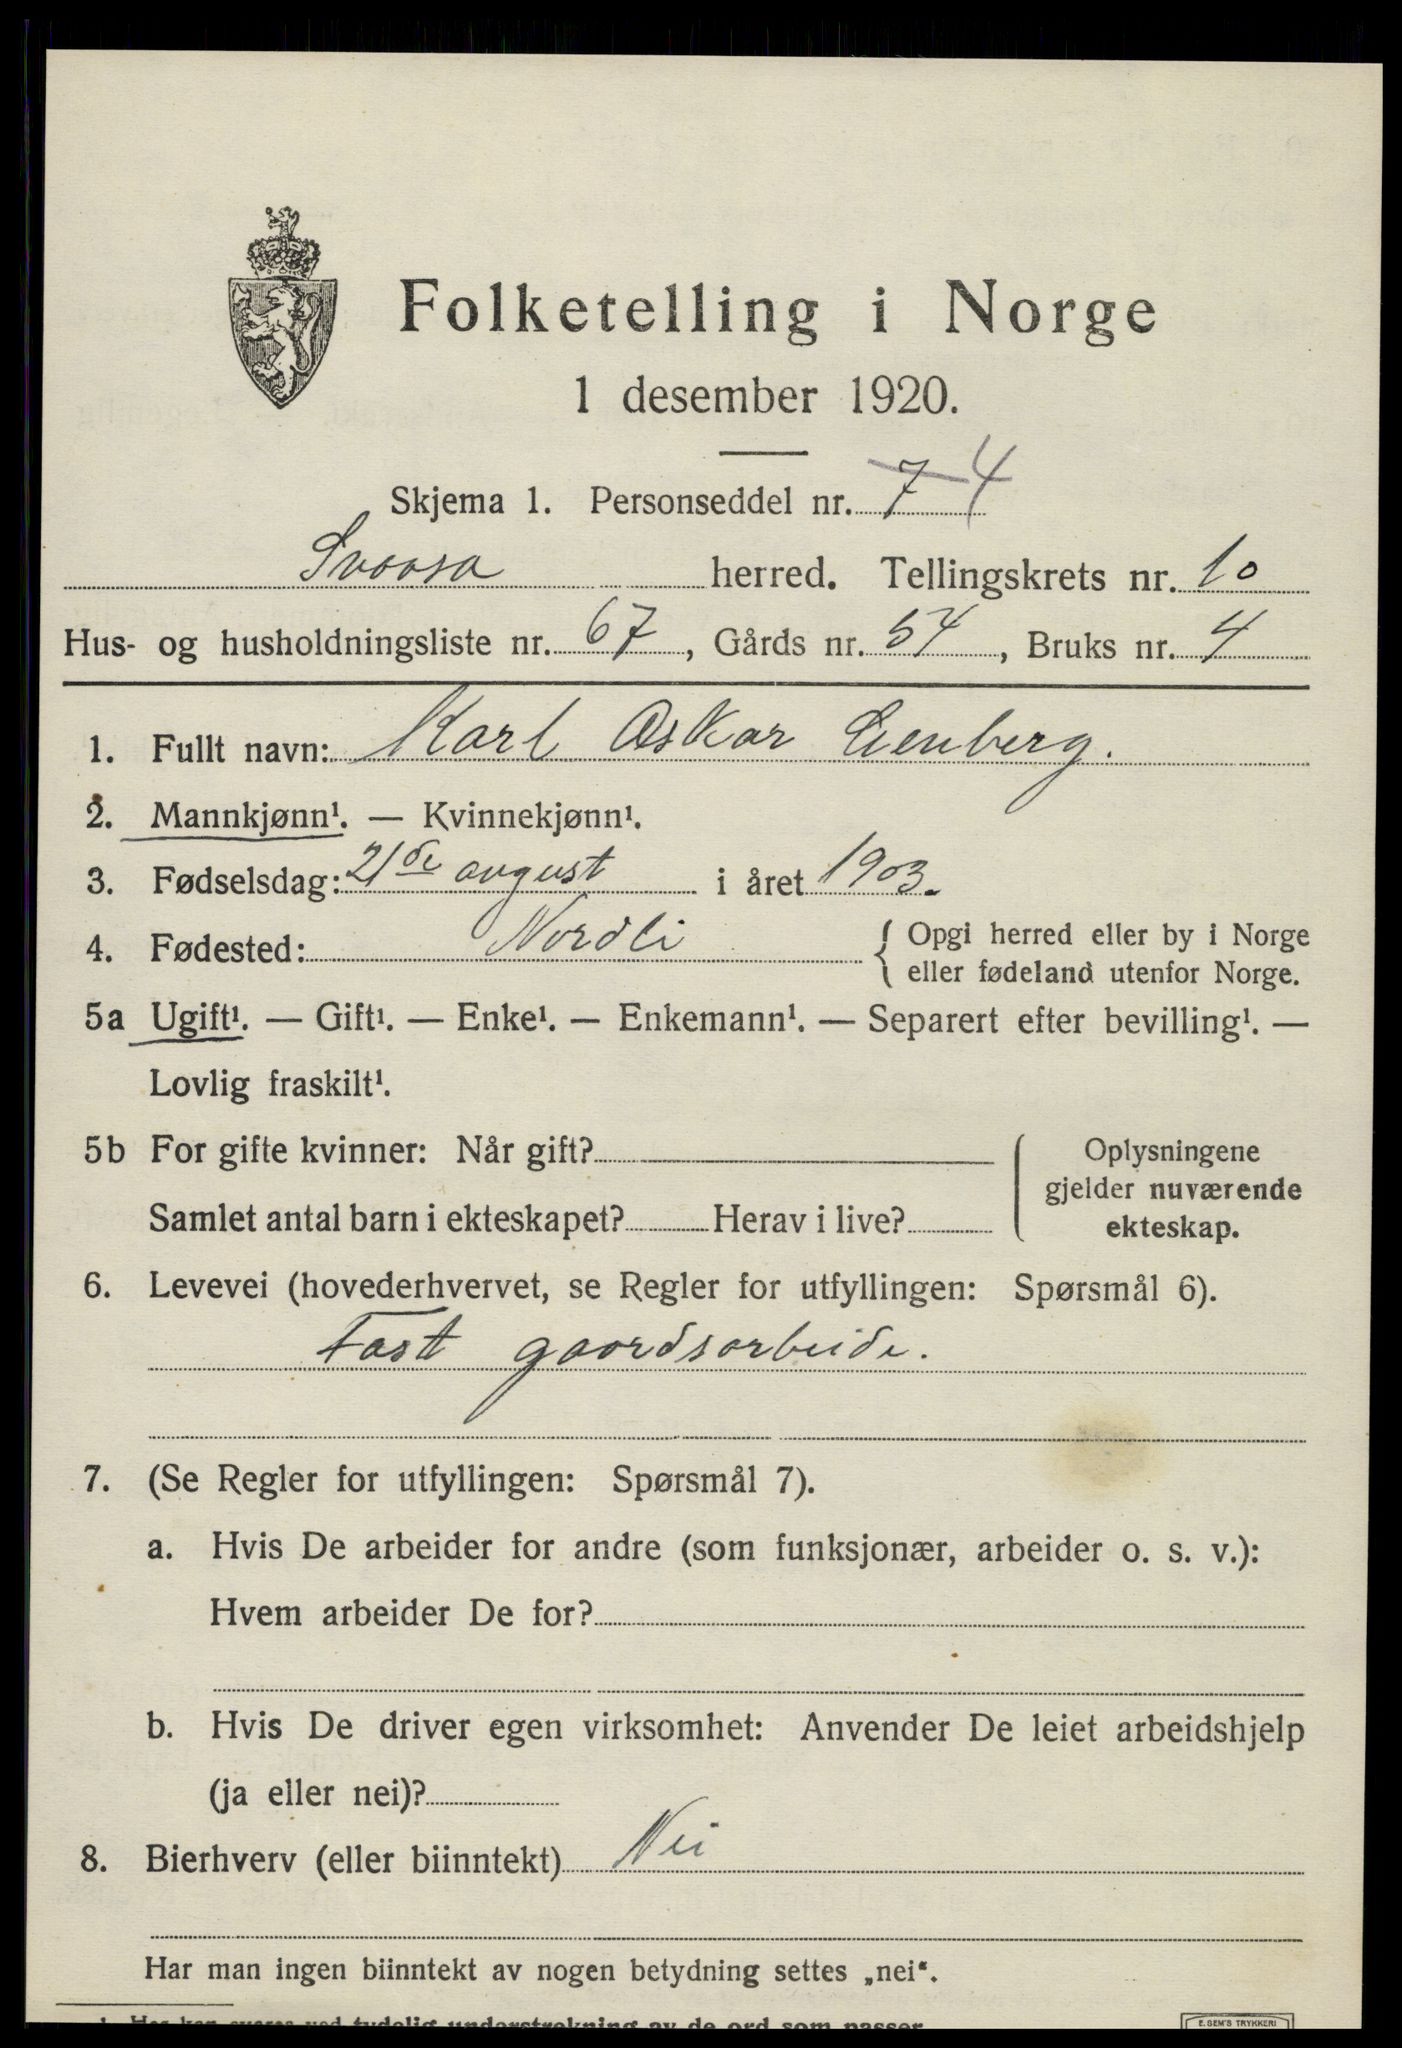 Folketelling i Norge
1 desember 1920.
Skjema 1. Personseddel nr. 7 4
Snaasa herred. Tellingskrets nr. 10
Hus- og husholdningsliste nr. 67, Gårds nr. 54, Bruks nr. 4
1. Fullt navn: Karl Oskar Lienberg.
2. Mannkjønn¹. — Kvinnekjønn¹.
3. Fødselsdag: 21de august i året 1903.
4. Fødested: Nordli { Opgi herred eller by i Norge
eller fødeland utenfor Norge.
5a Ugift¹. — Gift¹. — Enke¹. — Enkemann¹. — Separert efter bevilling¹. —
Lovlig fraskilt¹.
5b For gifte kvinner: Når gift?
Samlet antal barn i ekteskapet? Herav i live?
Oplysningene
gjelder nuværende
ekteskap.
6. Levevei (hovederhvervet, se Regler for utfyllingen: Spørsmål 6).
Fast gaardsarbeide.
7. (Se Regler for utfyllingen: Spørsmål 7).
a. Hvis De arbeider for andre (som funksjonær, arbeider o. s. v.):
Hvem arbeider De for?
b. Hvis De driver egen virksomhet: Anvender De leiet arbeidshjelp
(ja eller nei)?
8. Bierhverv (eller biinntekt) Nei
Har man ingen biinntekt av nogen betydning settes „nei“.
¹ Her kan svares ved tydelig understrekning av de ord som passer.
E. SEM'S TRYKKERI